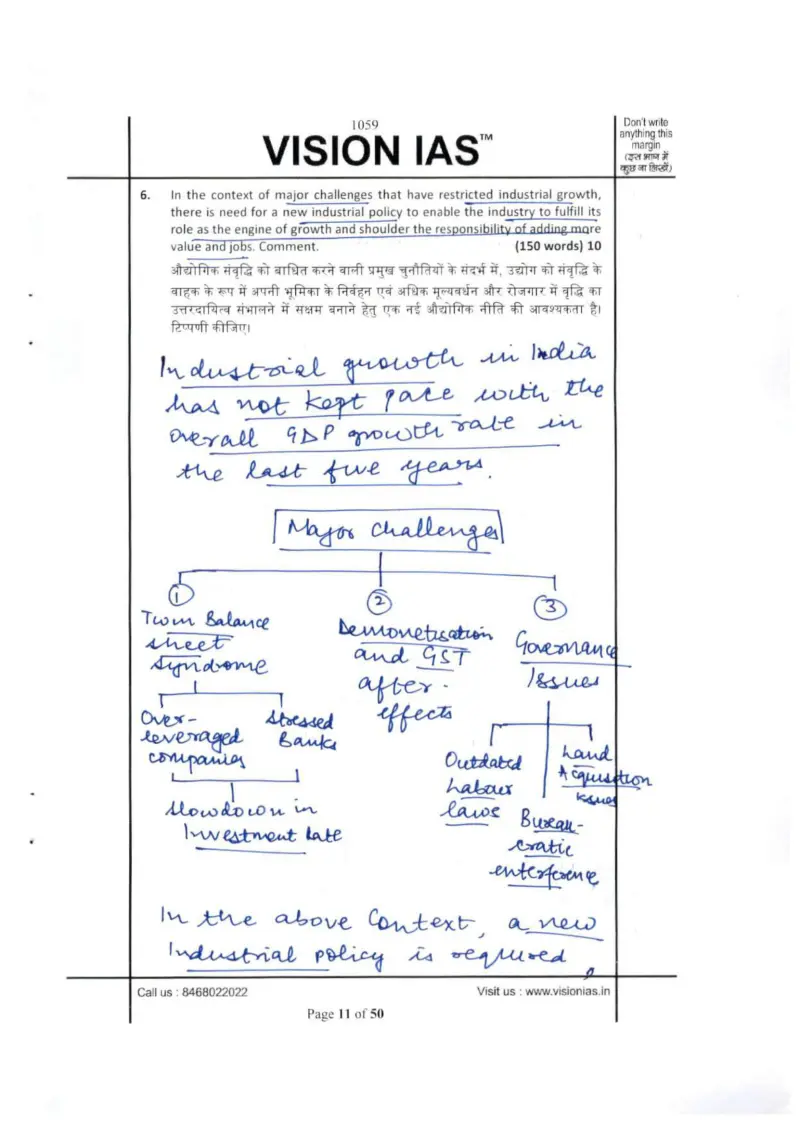 1059
VISION IAS™
Don't write
anything this
margin
(इस भाग में
कुछ ना लिखें)
6. In the context of major challenges that have restricted industrial growth,
there is need for a new industrial policy to enable the industry to fulfill its
role as the engine of growth and shoulder the responsibility of adding more
value and jobs. Comment. (150 words) 10
औद्योगिक संवृद्धि को बाधित करने वाली प्रमुख चुनौतियों के संदर्भ में, उद्योग को संवृद्धि के
वाहक के रूप में अपनी भूमिका के निर्वहन एवं अधिक मूल्यवर्धन और रोजगार में वृद्धि का
उत्तरदायित्व संभालने में सक्षम बनाने हेतु एक नई औद्योगिक नीति की आवश्यकता है।
टिप्पणी कीजिए।
Industrial growth in India
has not kept pace with the
overall GDP growth rate in
the last five years.
Major Challenges
1
2
3
Twin Balance
sheet
syndrome
Demonetisation
and GST
after-
effects
Governance
Issues
Over-
leveraged
companies
stressed
Banks
Slowdown in
Investment rate
Outdated
Labour
laws
Bureau-
cratic
enterference
Land
Acquisition
issues
In the above Context, a new
Industrial policy is required.
Call us : 8468022022
Visit us : www.visionias.in
Page 11 of 50